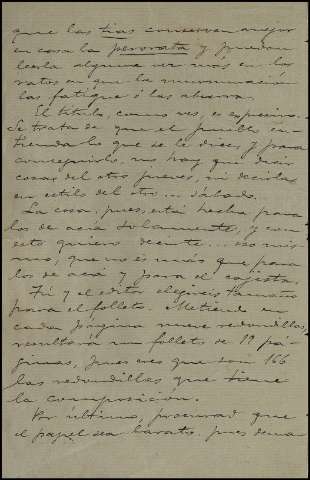 que las tias conserven mejor
en casa la perorata y puedan
leerla alguna vez más en los
ratos en que la murmuración
las fatigue ó las aburra.
El título, como ves, es
Se trata de que el pueblo en-
tienda lo que se le dice, y para
conseguirlo, no hay que decir
cosas del otro jueves, ni decirlas
en estilo del otro... sábado.
La cosa, pues, está hecha para
los de acá solamente, y con
esto quiero decirte... eso mis-
mo, que no es más que para
los de acá y para el cajista.
Tú y el editor elegireis tamaño
para el folleto. Metiendo en
cada página nueve redondillas,
resultará un folleto de 19 pá-
ginas, pues creo que son 166
las redondillas que tiene
la composición.
Por último, procurad que
el papel sea barato, pues dema-